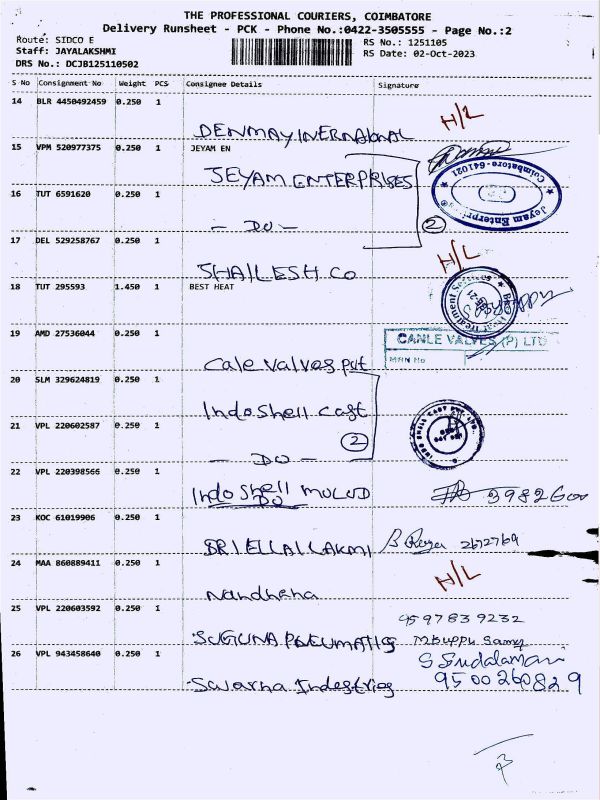 THE PROFESSIONAL COURIERS, COIMBATORE
Delivery Runsheet - PCK - Phone No.:0422-3505555 - Page No.:2
Route: SIDCO E
RS No.: 1251105
Staff: JAYALAKSHMI
RS Date: 02-Oct-2023
DRS No.: DCJB125110502
S No Consignment No Weight PCS Consignee Details Signature
14 BLR 4450492459 0.250 1
DENMAY INERNATIONAL H/L
15 VPM 520977375 0.250 1 JEYAM EN
JEYAM ENTERPRISES
Jeyam Enterprises
Coimbatore-641021
16 TUT 6591620 0.250 1
- DO - 2
17 DEL 529258767 0.250 1
SHAILESH CO H/L
18 TUT 295593 1.450 1 BEST HEAT
Best Heat Treatment Services
19 AMD 27536044 0.250 1
Cale valves pvt
CANLE VALVES (P) LTD
MRN No
20 SLM 329624819 0.250 1
Indo shell cast
INDO SHELL CAST PVT. LTD.
21 VPL 220602587 0.250 1
- DO - 2
22 VPL 220398566 0.250 1
Indo shell MOULD 3982600
DO
23 KOC 61019906 0.250 1
SRI ELLAI LAKMI 2672769
24 MAA 860889411 0.250 1
Nandhana H/L
25 VPL 220603592 0.250 1
9597839232
SUGUNA PNEUMATIGS M.Kuppu Samy
26 VPL 943458640 0.250 1
S Sudalamani
Swarna Indestries 9500260829